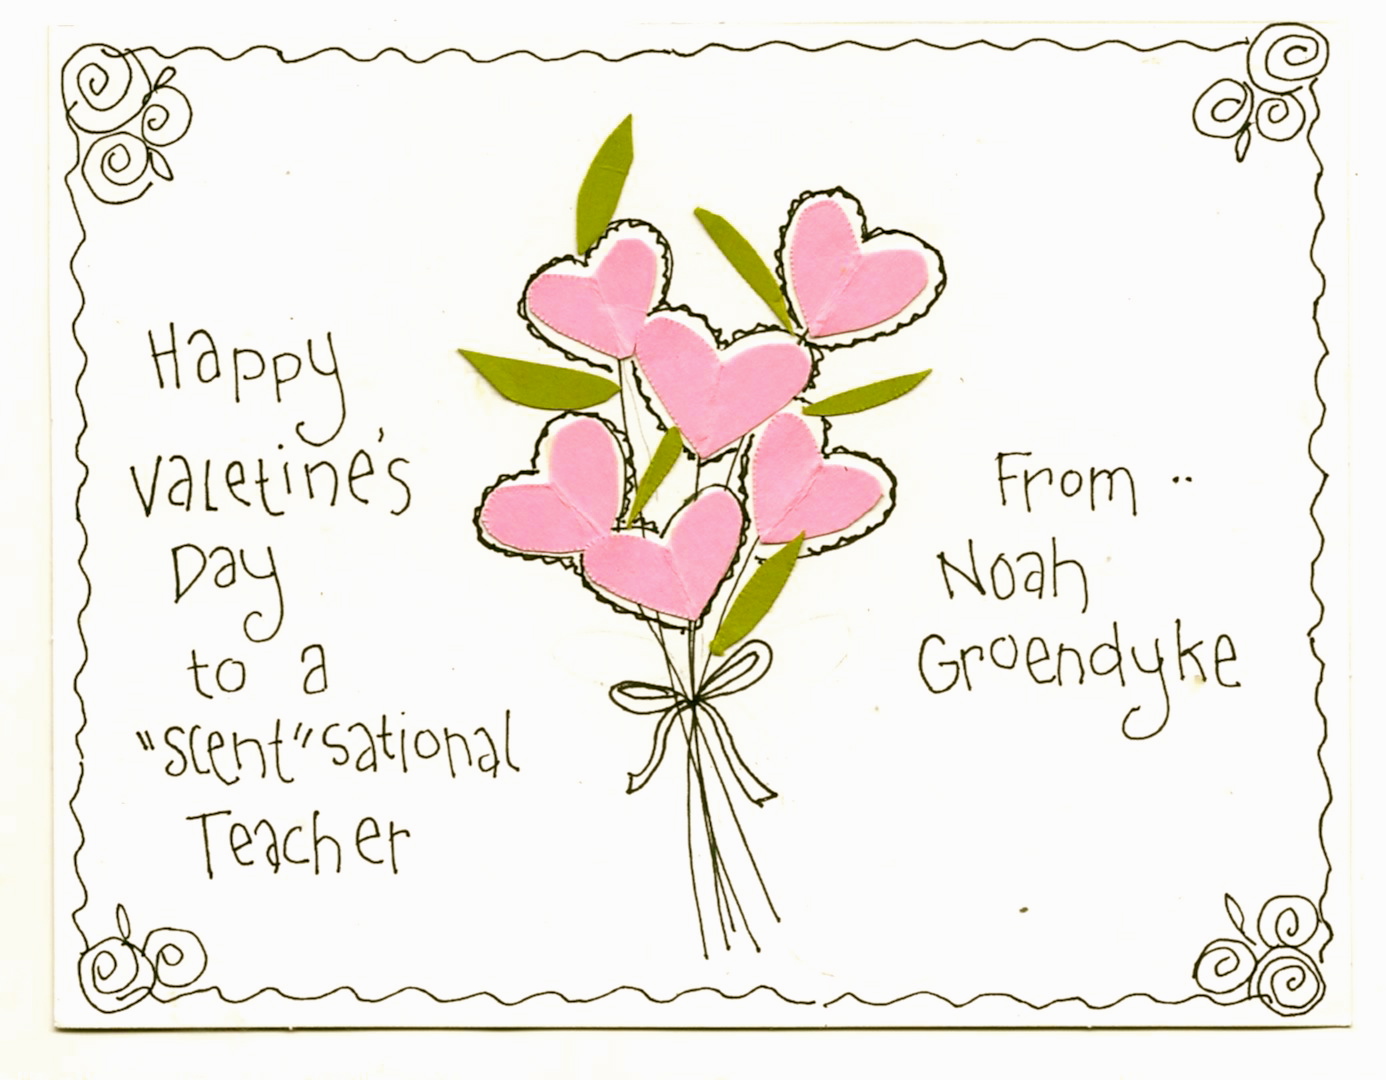 Happy
Valetine's
Day
to a
"scent"sational
Teacher
From ..
Noah
Groendyke